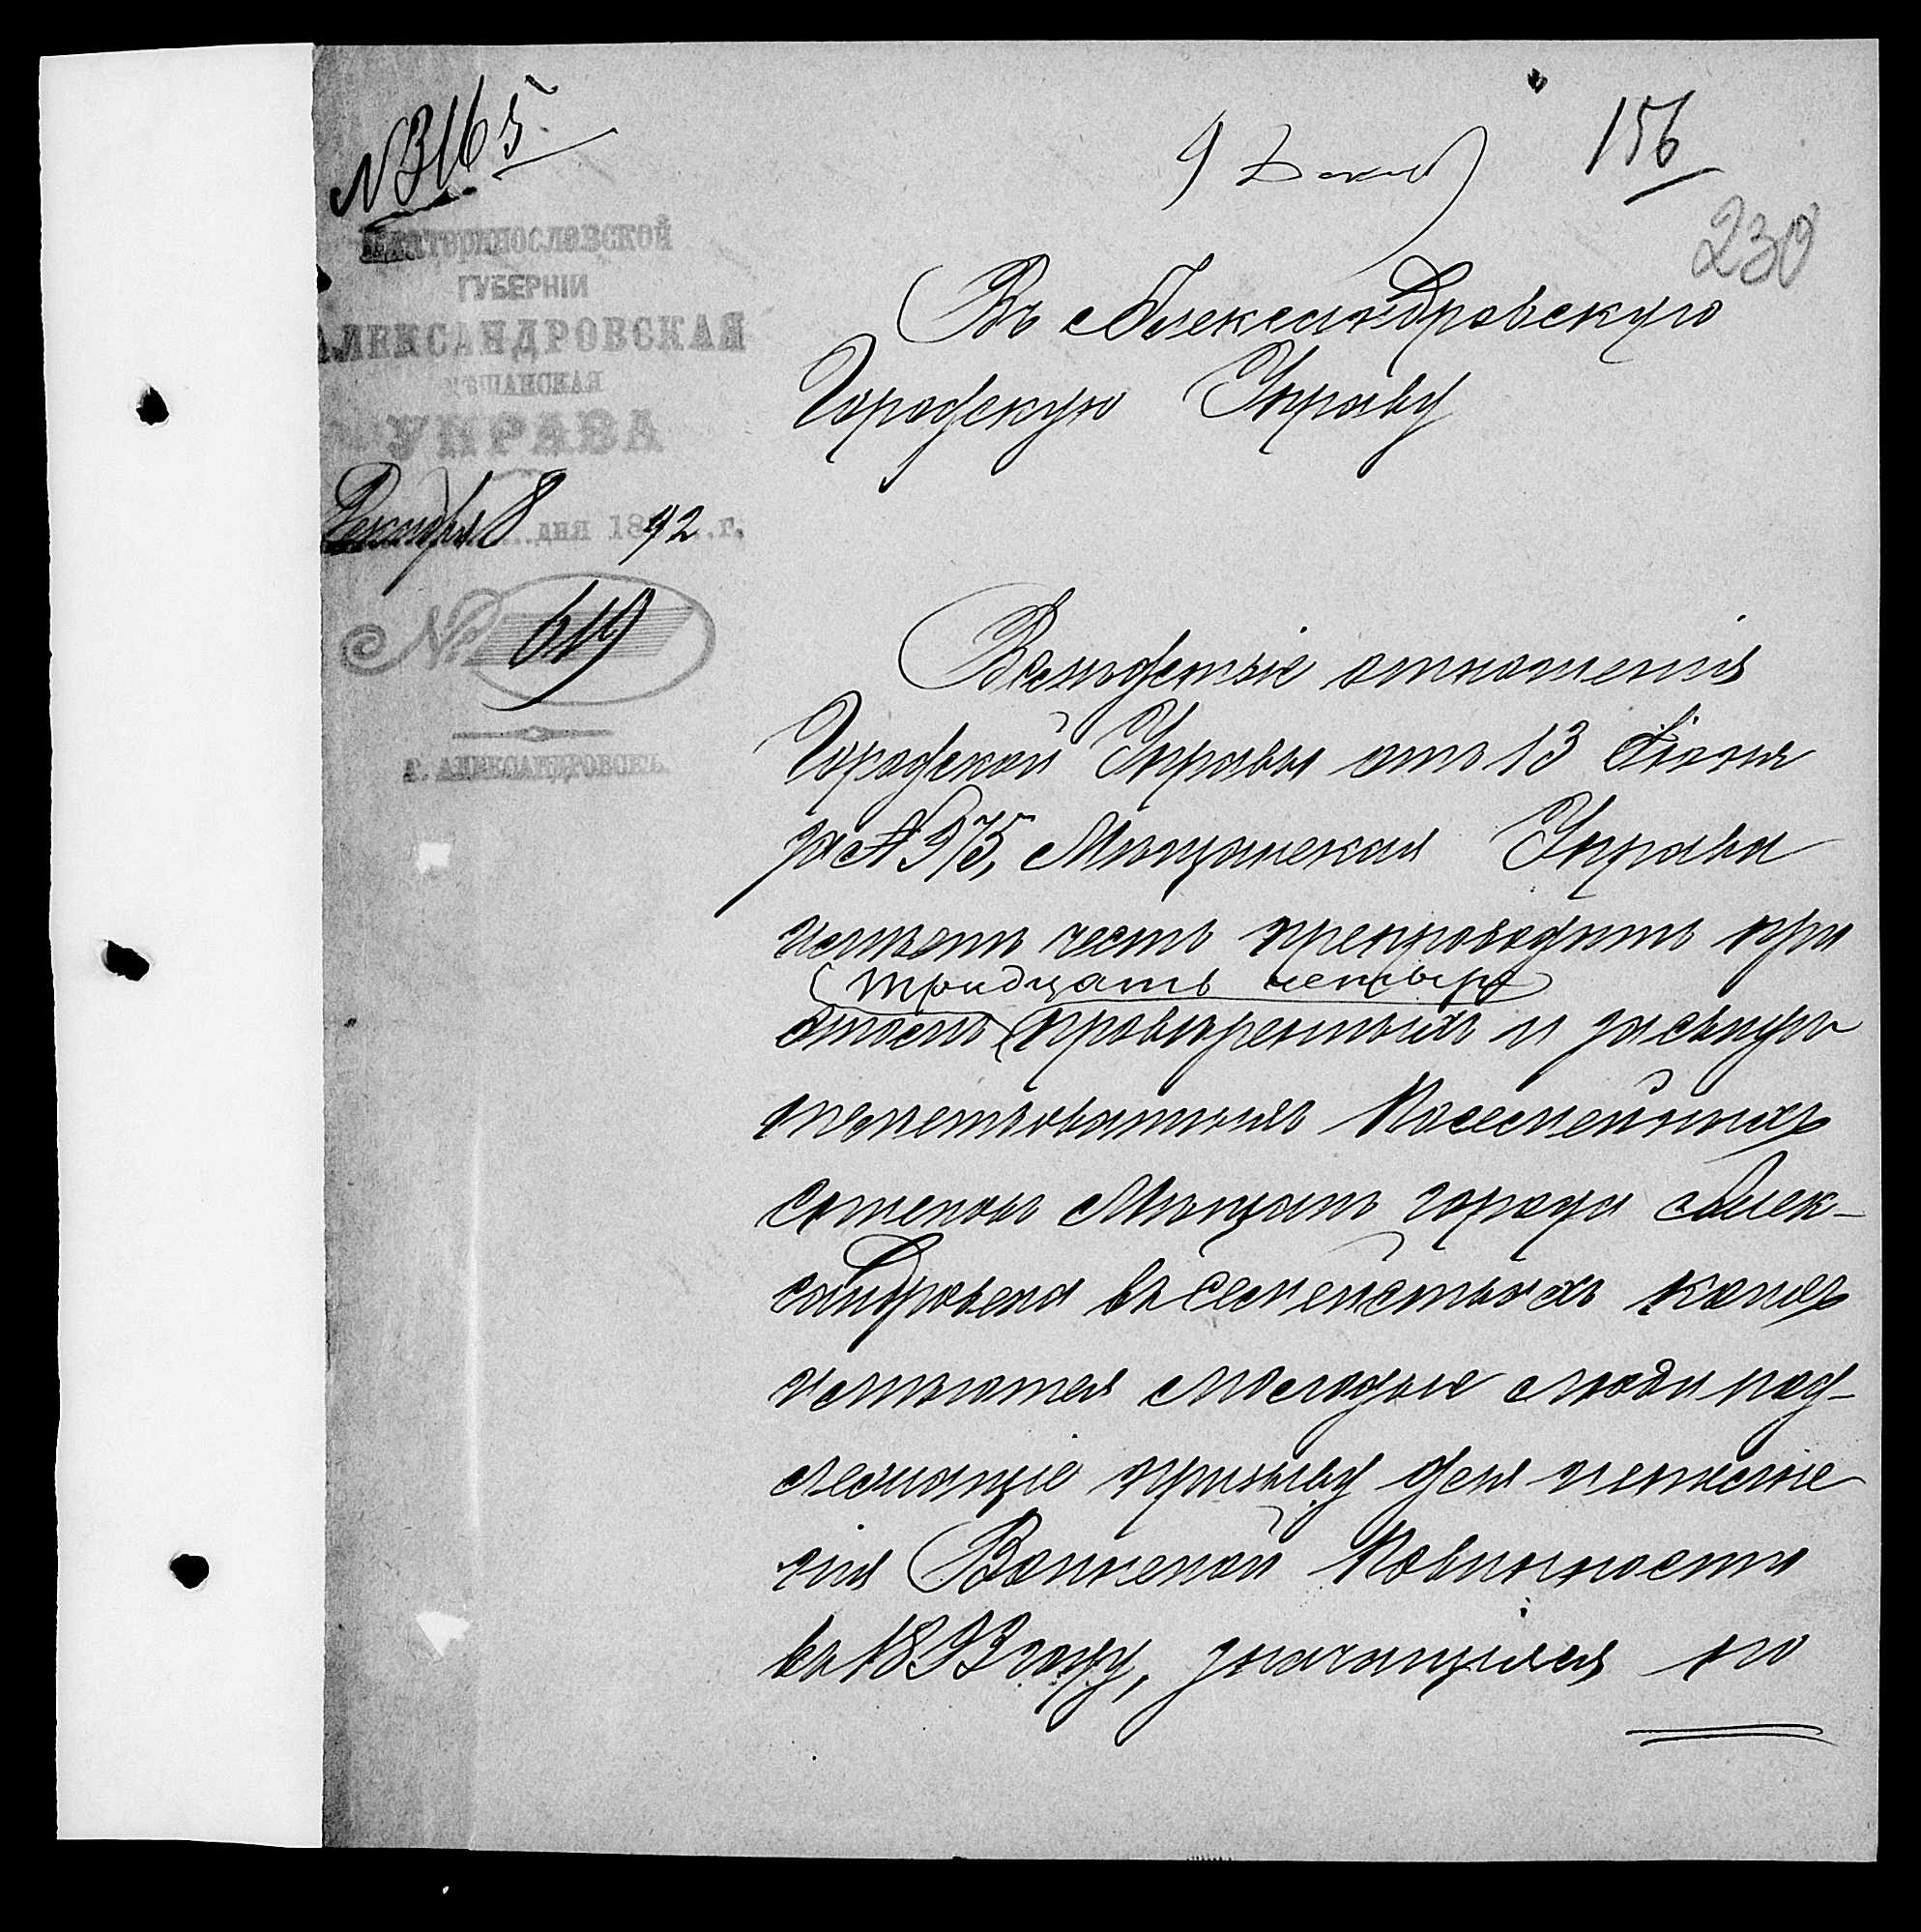 №3165
9 Декаб
156
230
Екатеринославской
ГУБЕРНІИ
АЛЕКСАНДРОВСКАЯ
МѢЩАНСКАЯ
УПРАВА
Декабря 8 дня 1892 г.
№ 619
г. АЛЕКСАНДРОВСКЪ.
Въ Александровскую
Городскую Управу
Вслѣдствіе отношенія
Городской Управы отъ 13 Іюня
за № 975, Мѣщанская Управа
имѣетъ честь препроводить при
(тридцать четыре)
этомъ провѣренныхъ и засвидѣ-
тельствованныхъ Посемейныхъ
списковъ Мѣщанъ города Алек-
сандровска въ семействахъ коихъ
имѣются молодые люди под-
лежащіе призыву для исполне
нія Воинской Повинности
въ 1893 году, значащіяся по